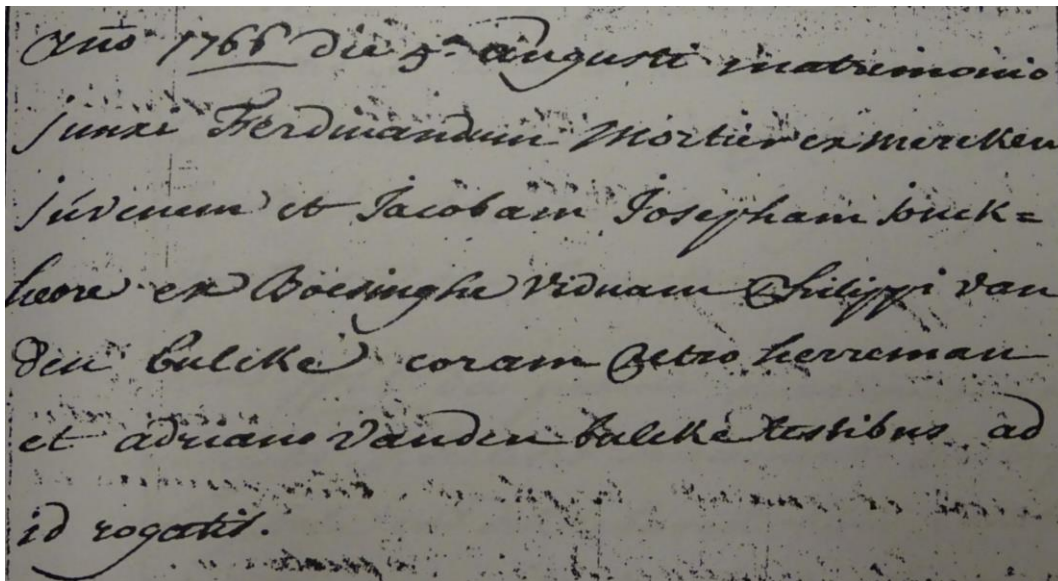 Año 1766 die 5ª augusti matrimonio
junxi Ferdinandum Mortier ex mercken
juvenem et Jacobam Josepham jonck=
heere ex Boesinghe viduam Philippi van
den bulcke coram Petro herreman
et adriano vanden bulcke testibus ad
id rogatis.